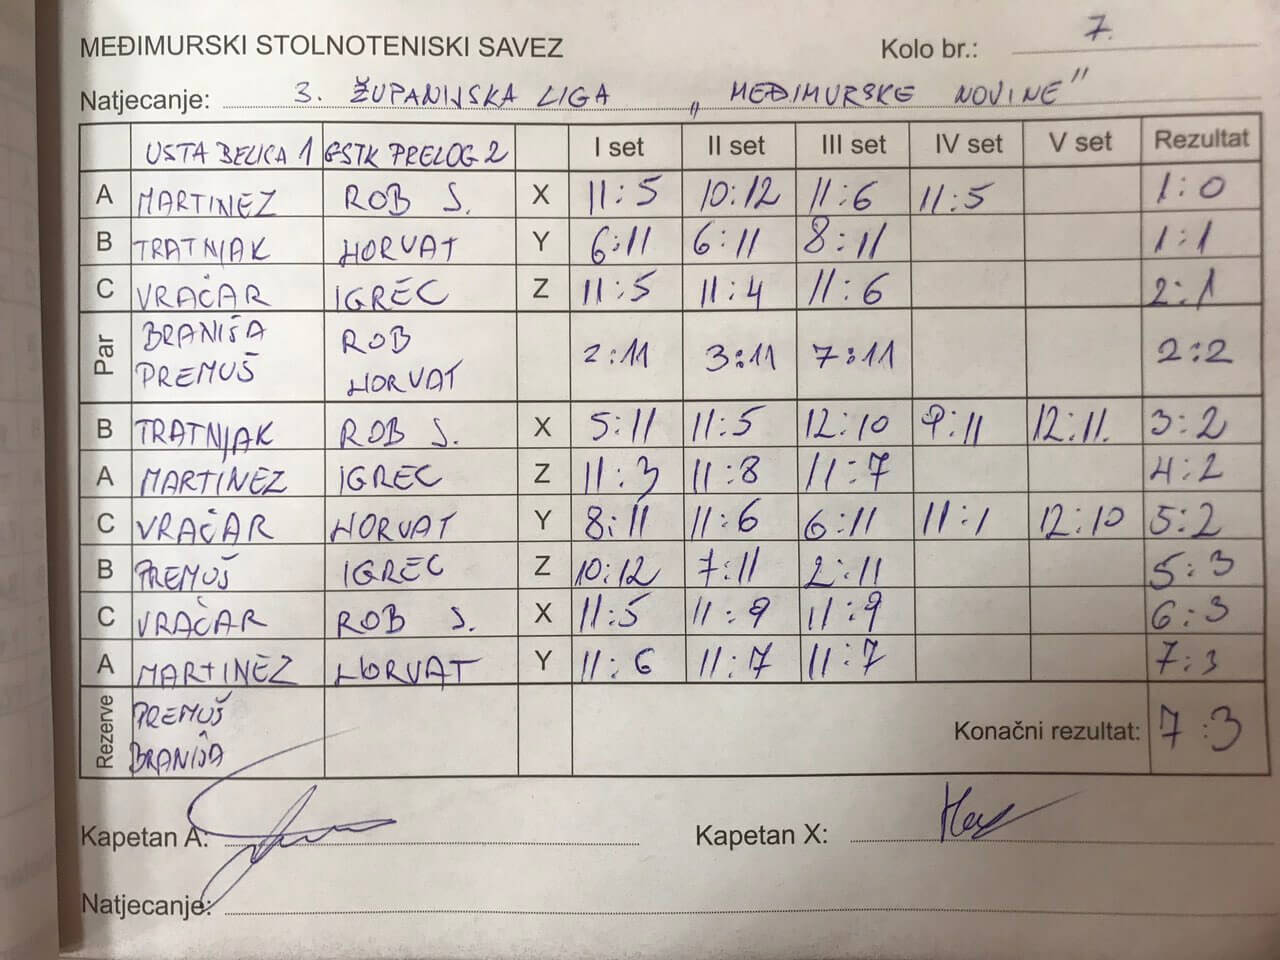 MEĐIMURSKI STOLNOTENISKI SAVEZ Kolo br.: 7.
Natjecanje: 3. ŽUPANIJSKA LIGA „MEĐIMURSKE NOVINE”
USTA BELICA 1 GSTK PRELOG 2 I set II set III set IV set V set Rezultat
A MARTINEZ ROB S. X 11:5 10:12 11:6 11:5 1:0
B TRATNJAK HORVAT Y 6:11 6:11 8:11 1:1
C VRAČAR IGREC Z 11:5 11:4 11:6 2:1
Par BRANIŠA PREMUŠ ROB HORVAT 2:11 3:11 7:11 2:2
B TRATNJAK ROB S. X 5:11 11:5 12:10 9:11 12:11. 3:2
A MARTINEZ IGREC Z 11:3 11:8 11:7 4:2
C VRAČAR HORVAT Y 8:11 11:6 6:11 11:1 12:10 5:2
B PREMUŠ IGREC Z 10:12 7:11 2:11 5:3
C VRAČAR ROB S. X 11:5 11:9 11:9 6:3
A MARTINEZ HORVAT Y 11:6 11:7 11:7 7:3
Rezerve PREMUŠ BRANIŠA Konačni rezultat: 7:3
Kapetan A: Kapetan X:
Natjecanje: